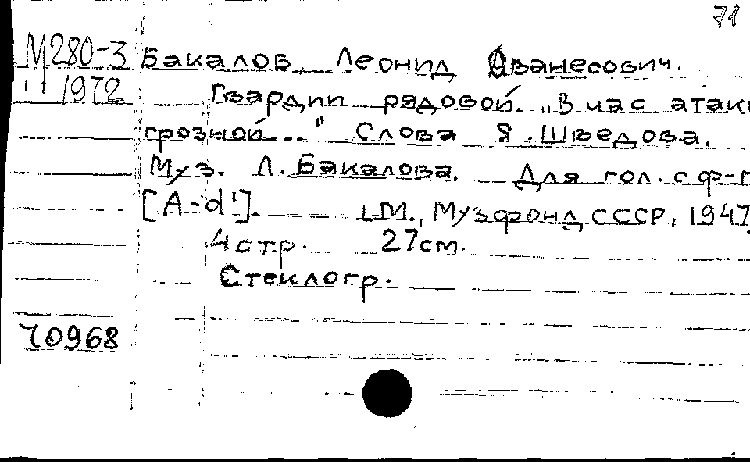 71
М280-3 Бакалов, Леонид Ованесович.
1972 Гвардии рядовой. "В час атаки
грозной..." Слова Я. Шведова.
Муз. Л. Бакалова. Для гол. с ф-п
[A-d¹]. М., Музфонд СССР, 1947
4 стр. 27 см.
Стеклогр.
70968